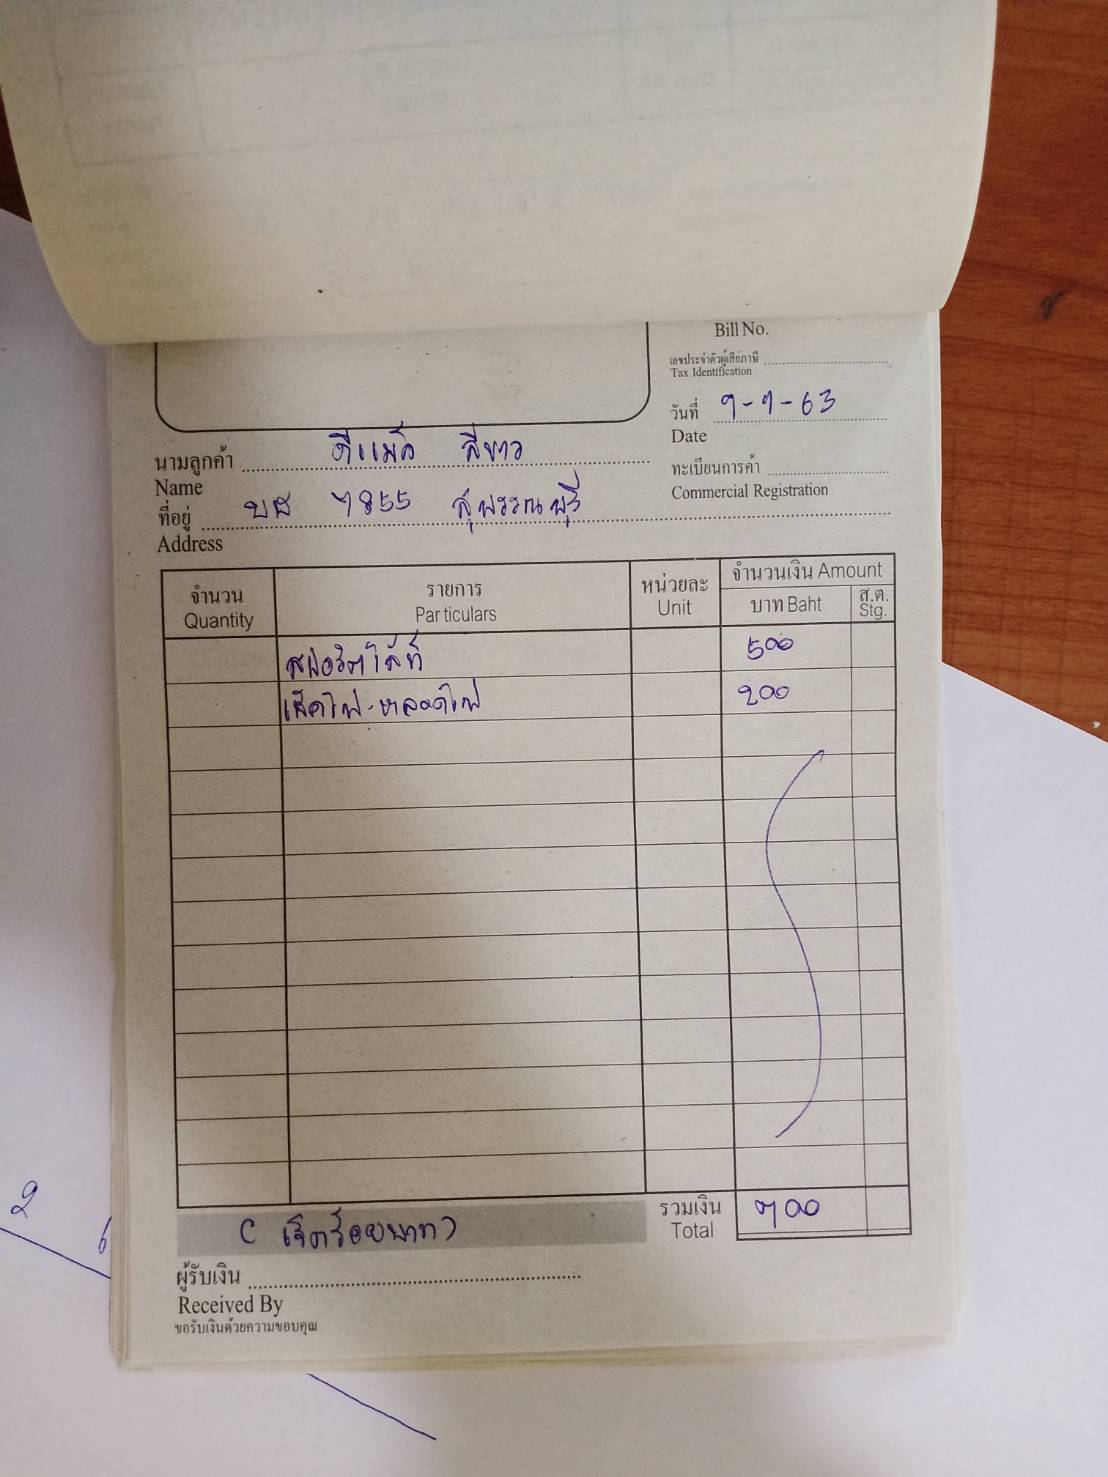 Bill No.
เลขประจำตัวผู้เสียภาษี
Tax Identification
วันที่ 9-9-63
Date
นามลูกค้า ดีแม็ก สีขาว
Name
ทะเบียนการค้า
Commercial Registration
ที่อยู่ บต 7855 สุพรรณบุรี
Address
จำนวน รายการ หน่วยละ จำนวนเงิน Amount
Quantity Particulars Unit บาท Baht ส.ต. Stg.
500
เช็คไฟ-หลอดไฟ 200
รวมเงิน 700
Total
( เจ็ดร้อยบาท )
ผู้รับเงิน
Received By
ขอรับเงินด้วยความขอบคุณ
2
6